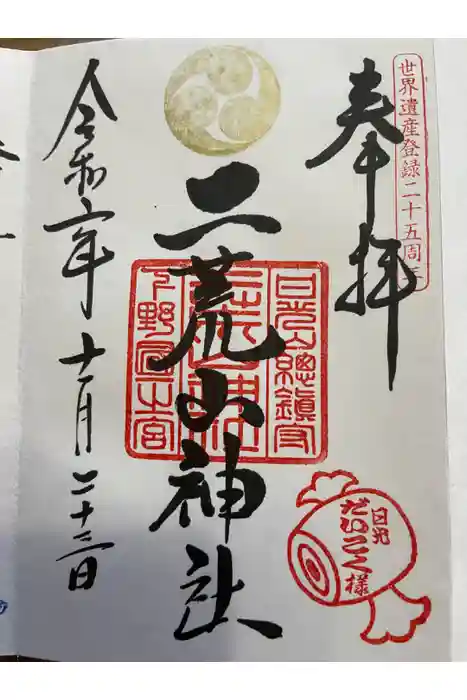 世界遺産登録二十五周年
奉拝
日光山總鎮守
二荒山神社
下野國一之宮
二荒山神社
令和六年十一月二十三日
日光
だいこく様